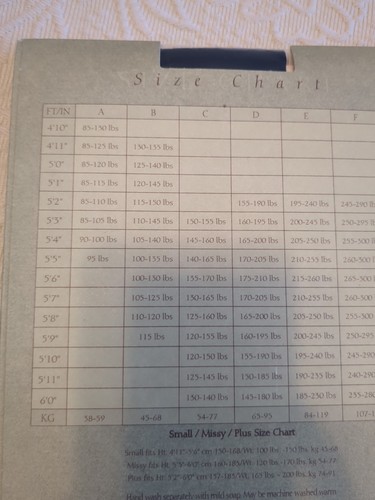 Size Chart
FT/IN A B C D E F
4'10" 85-130 lbs
4'11" 85-125 lbs 130-135 lbs
5'0" 85-120 lbs 125-140 lbs
5'1" 85-115 lbs 120-145 lbs
5'2" 85-110 lbs 115-150 lbs 155-190 lbs 195-240 lbs 245-290 lb
5'3" 85-105 lbs 110-145 lbs 150-155 lbs 160-195 lbs 200-245 lbs 250-295 l
5'4" 90-100 lbs 105-140 lbs 145-160 lbs 165-200 lbs 205-250 lbs 255-300
5'5" 95 lbs 100-135 lbs 140-165 lbs 170-205 lbs 210-255 lbs 260-300
5'6" 100-130 lbs 135-170 lbs 175-210 lbs 215-260 lbs 265-300
5'7" 105-125 lbs 130-165 lbs 170-205 lbs 210-255 lbs 260-300
5'8" 110-120 lbs 125-160 lbs 165-200 lbs 205-250 lbs 255-300
5'9" 115 lbs 120-155 lbs 160-195 lbs 200-245 lbs 250-295
5'10" 120-150 lbs 155-190 lbs 195-240 lbs 245-290
5'11" 125-145 lbs 150-185 lbs 190-235 lbs 240-290
6'0" 130-140 lbs 145-180 lbs 185-230 lbs 235-280
KG 38-59 45-68 54-77 65-95 84-119 107-1
Small / Missy / Plus Size Chart
Small fits Ht: 4'11"-5'6" cm 150-168/Wt: 100 lbs - 150 lbs. kg 45-68
Missy fits Ht: cm lbs. kg 54-77
Plus fits Ht: cm lbs - 200 lbs. kg 74-91
Hand wash separately with mild soap. May be machine washed warm